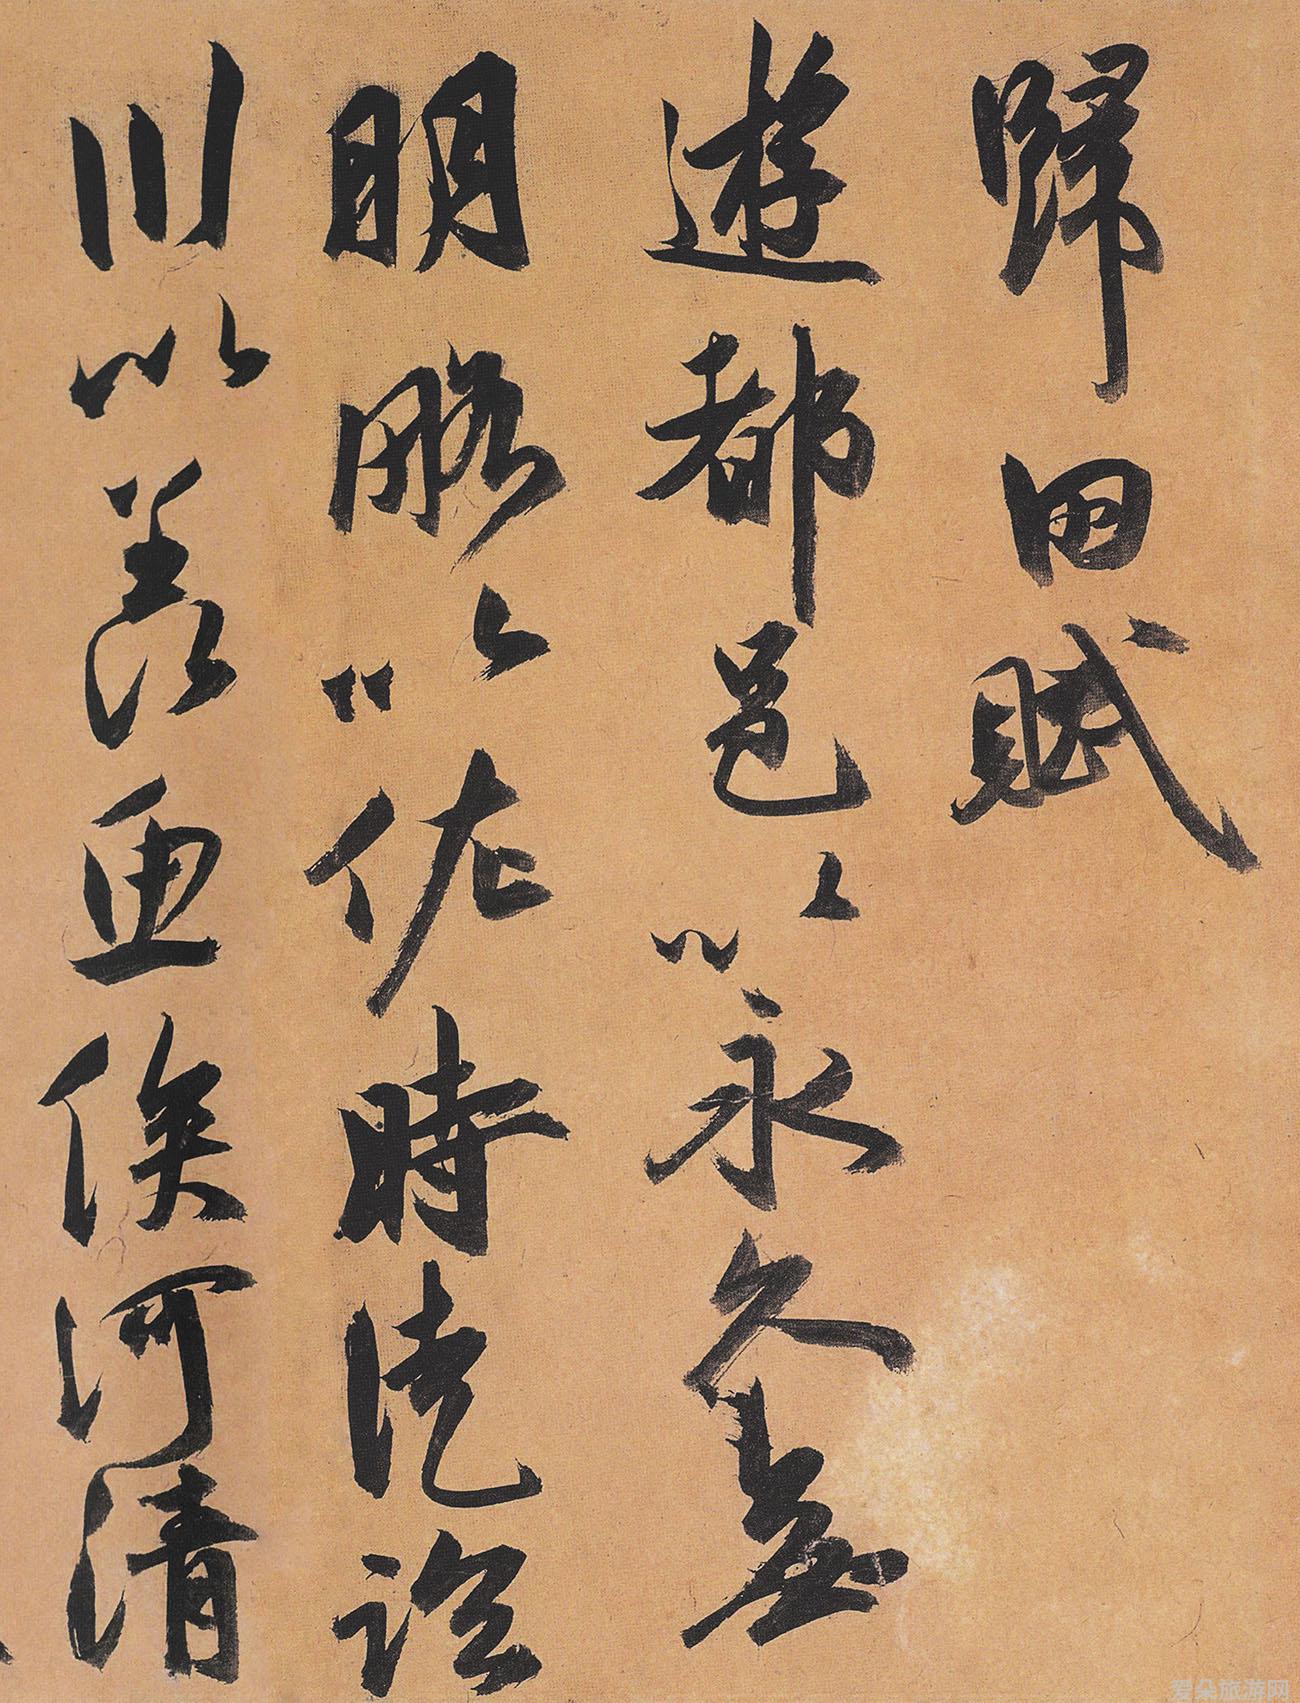 歸田賦
遊都邑以永久無
明略以佐時徒臨
川以羨魚俟河清
爱朵旅游网